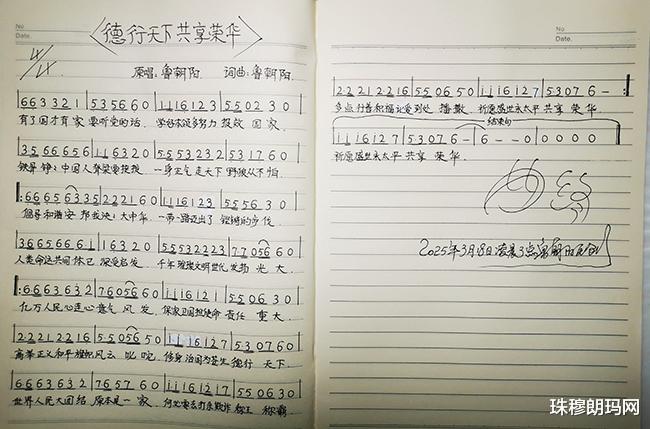 No
Date.
《德行天下共享荣华》
4/4
原唱:鲁朝阳 词曲:鲁朝阳
663321 | 535660 | 1116123 | 5502 3 0 |
有了国才有家 要听党的话, 学好本领多努力 报效 国家,
35666656 | 116320 | 55532232 | 531760 |
铁骨铮铮中国人脊梁要挺拔 一身正气走天下 野狼从不怕
|: 66656335 | 222160 | 1116123 | 555060 |
倡导和谐安邦我泱泱大中华 一带一路迈出了 铿锵的步伐
36656661 | 16320 | 55532223 | 770562 |
人类命运共同体已 深受启发 千年璀璨文明世代发扬 光 大
|: 6663632 | 7605660 | 1116121 | 550630 |
亿万人民心连心意气 风 发, 保家卫国担使命 责任 重 大
22221216 | 550565 0 | 1116127 | 530760 |
高举正义和平旗帜风云 叱 咤, 修身治国为苍生 德行 天下
6663632 | 765760 | 11116127 | 550630 |
世界人民大团结 原本是一 家, 称王 称霸
No
Date.
222212216 | 550650 | 1116127 | 53076- :|
多点行善积福让爱到处 播撒, 祈愿盛世永太平 共享 荣 华
结束句
1116127 | 53076- | 6--0 | 0000 ‖
祈愿盛世永太平 共享 荣 华.
2025年3月18日凌晨3点
珠穆朗玛网